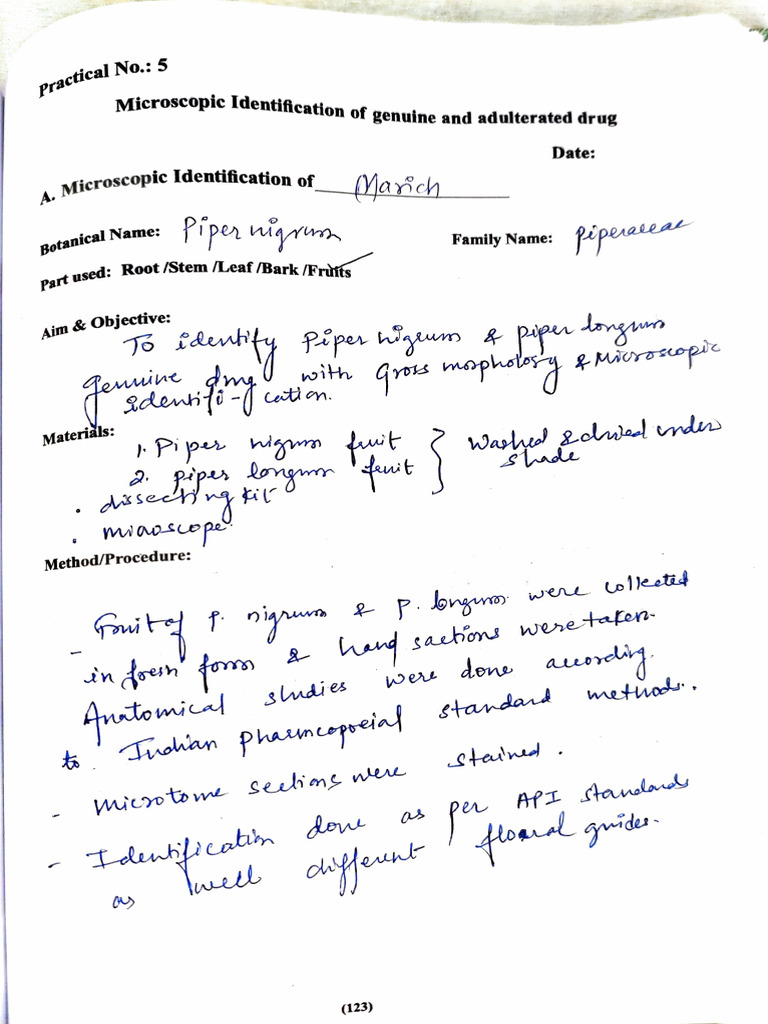 Practical No.: 5
Microscopic Identification of genuine and adulterated drug
Date:
A. Microscopic Identification of Marich
Botanical Name: Piper nigrum Family Name: Piperaceae
Part used: Root /Stem /Leaf /Bark /Fruits
Aim & Objective:
To identify Piper nigrum & piper longum
genuine drug with Gross morphology & Microscopic
identifi-cation.
Materials:
1. Piper nigrum fruit } Washed & dried under
2. piper longum fruit shade
• dissecting kit
• microscope.
Method/Procedure:
- Fruit of P. nigrum & P. longum were collected
in fresh form & hand sactions were taken.
Anatomical studies were done according.
to Indian Pharmcopoeial standard methods.
- Microtome sections were stained.
- Identification done as per API standards
as well different floral guides.
(123)